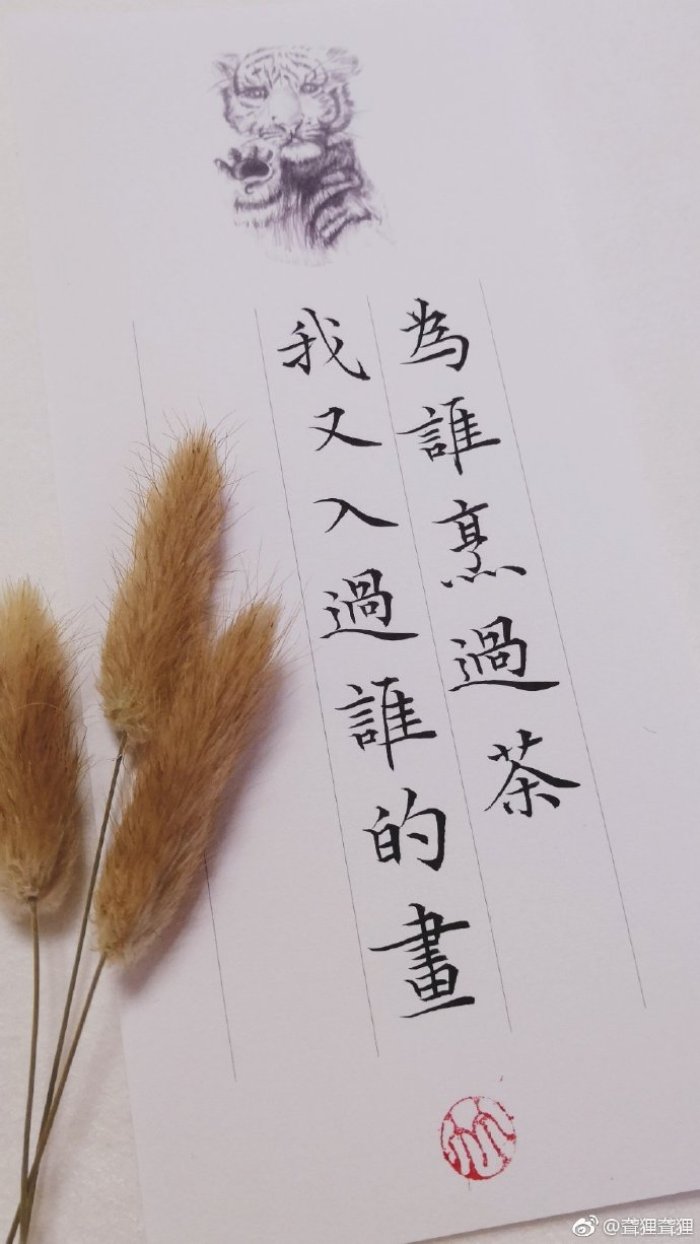 為誰烹過茶
我又入過誰的畫
@聋狸聋狸